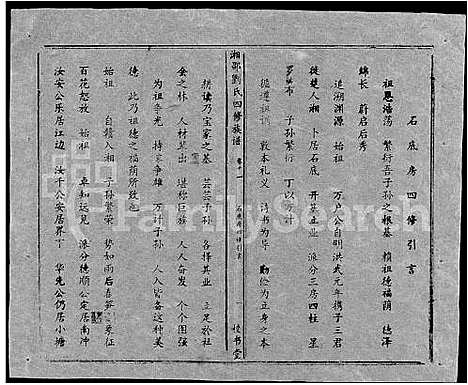 石底房四修引言
祖恩浩荡 繁衍吾子孙之根基 赖祖德福荫 德泽
绵长 蔚启后秀
追溯渊源 始祖 万户公自明洪武元年携子三君
徙楚入湘 卜居石底 开基立业 派分三房四柱 星
罗棋布 子孙繁衍 丁以万计
循遵祖训 敦本礼义 诗书为导 勤俭为立身之本
湘鄂刘氏四修族谱 卷十一 石底房四修引言 一 校书堂
耕读乃宝家之基 芸芸子孙 各择其业 立足於社
会之林 人材辈出 堪称巨族 人人奋发 个个图强
为祖争光 持家争雄 万计子孙 人人皆备这种美
德 此乃祖德之福荫所致也
始祖 自赣入湘 子孙繁荣 势如雨后春笋 象征
百花怒放 始祖 卓知远见 派分德顺公定居南冲
汝安公乐居江边 汝千公安居界下 华先公仍居小塘
FamilySearch